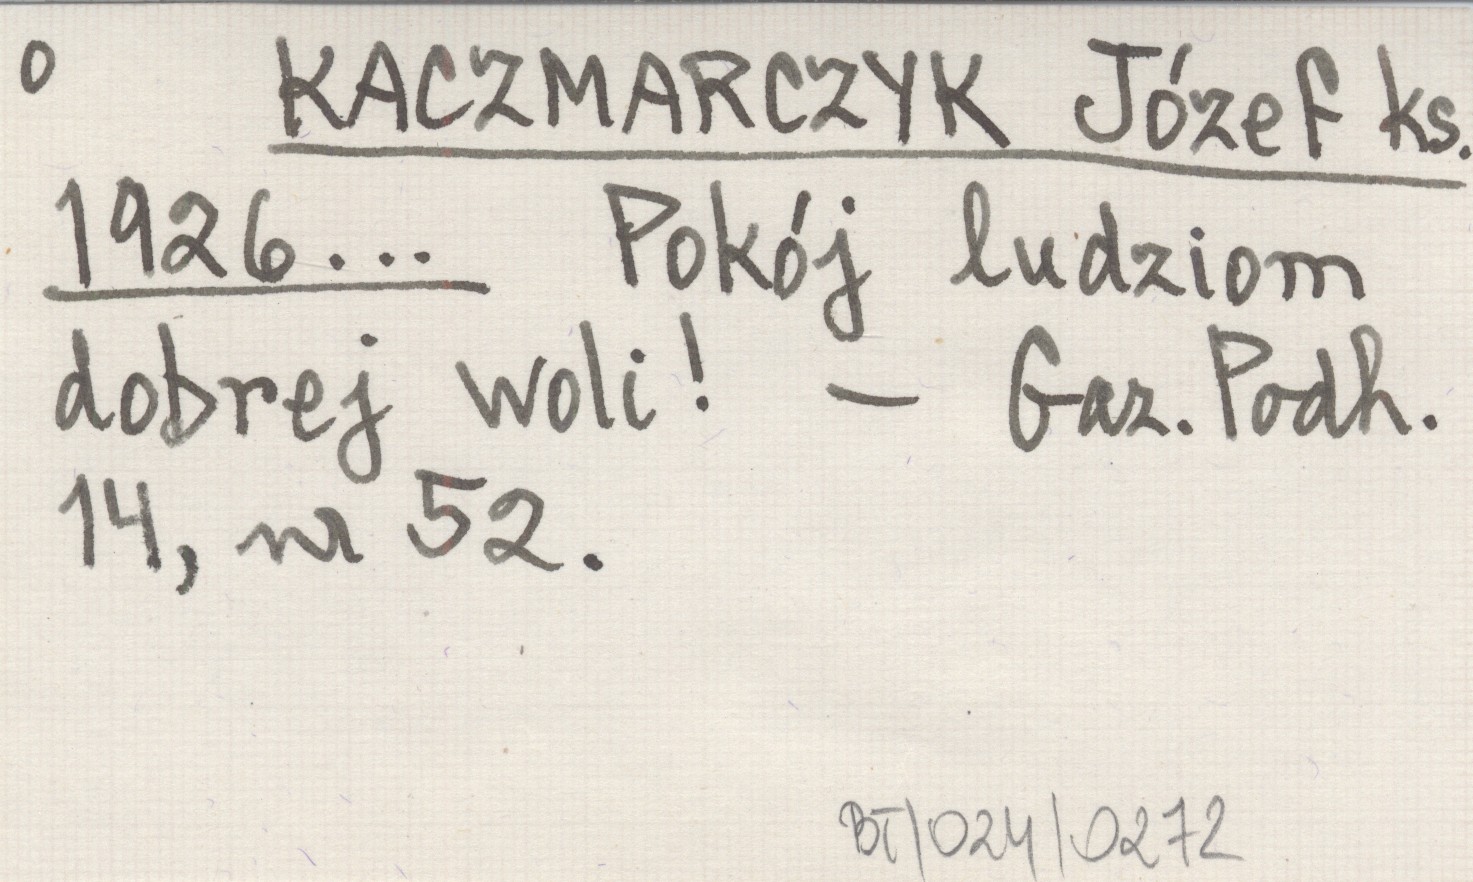 o KACZMARCZYK Józef ks.
1926... Pokój ludziom
dobrej woli! — Gaz. Podh.
14, nr 52.
BT/024/0272